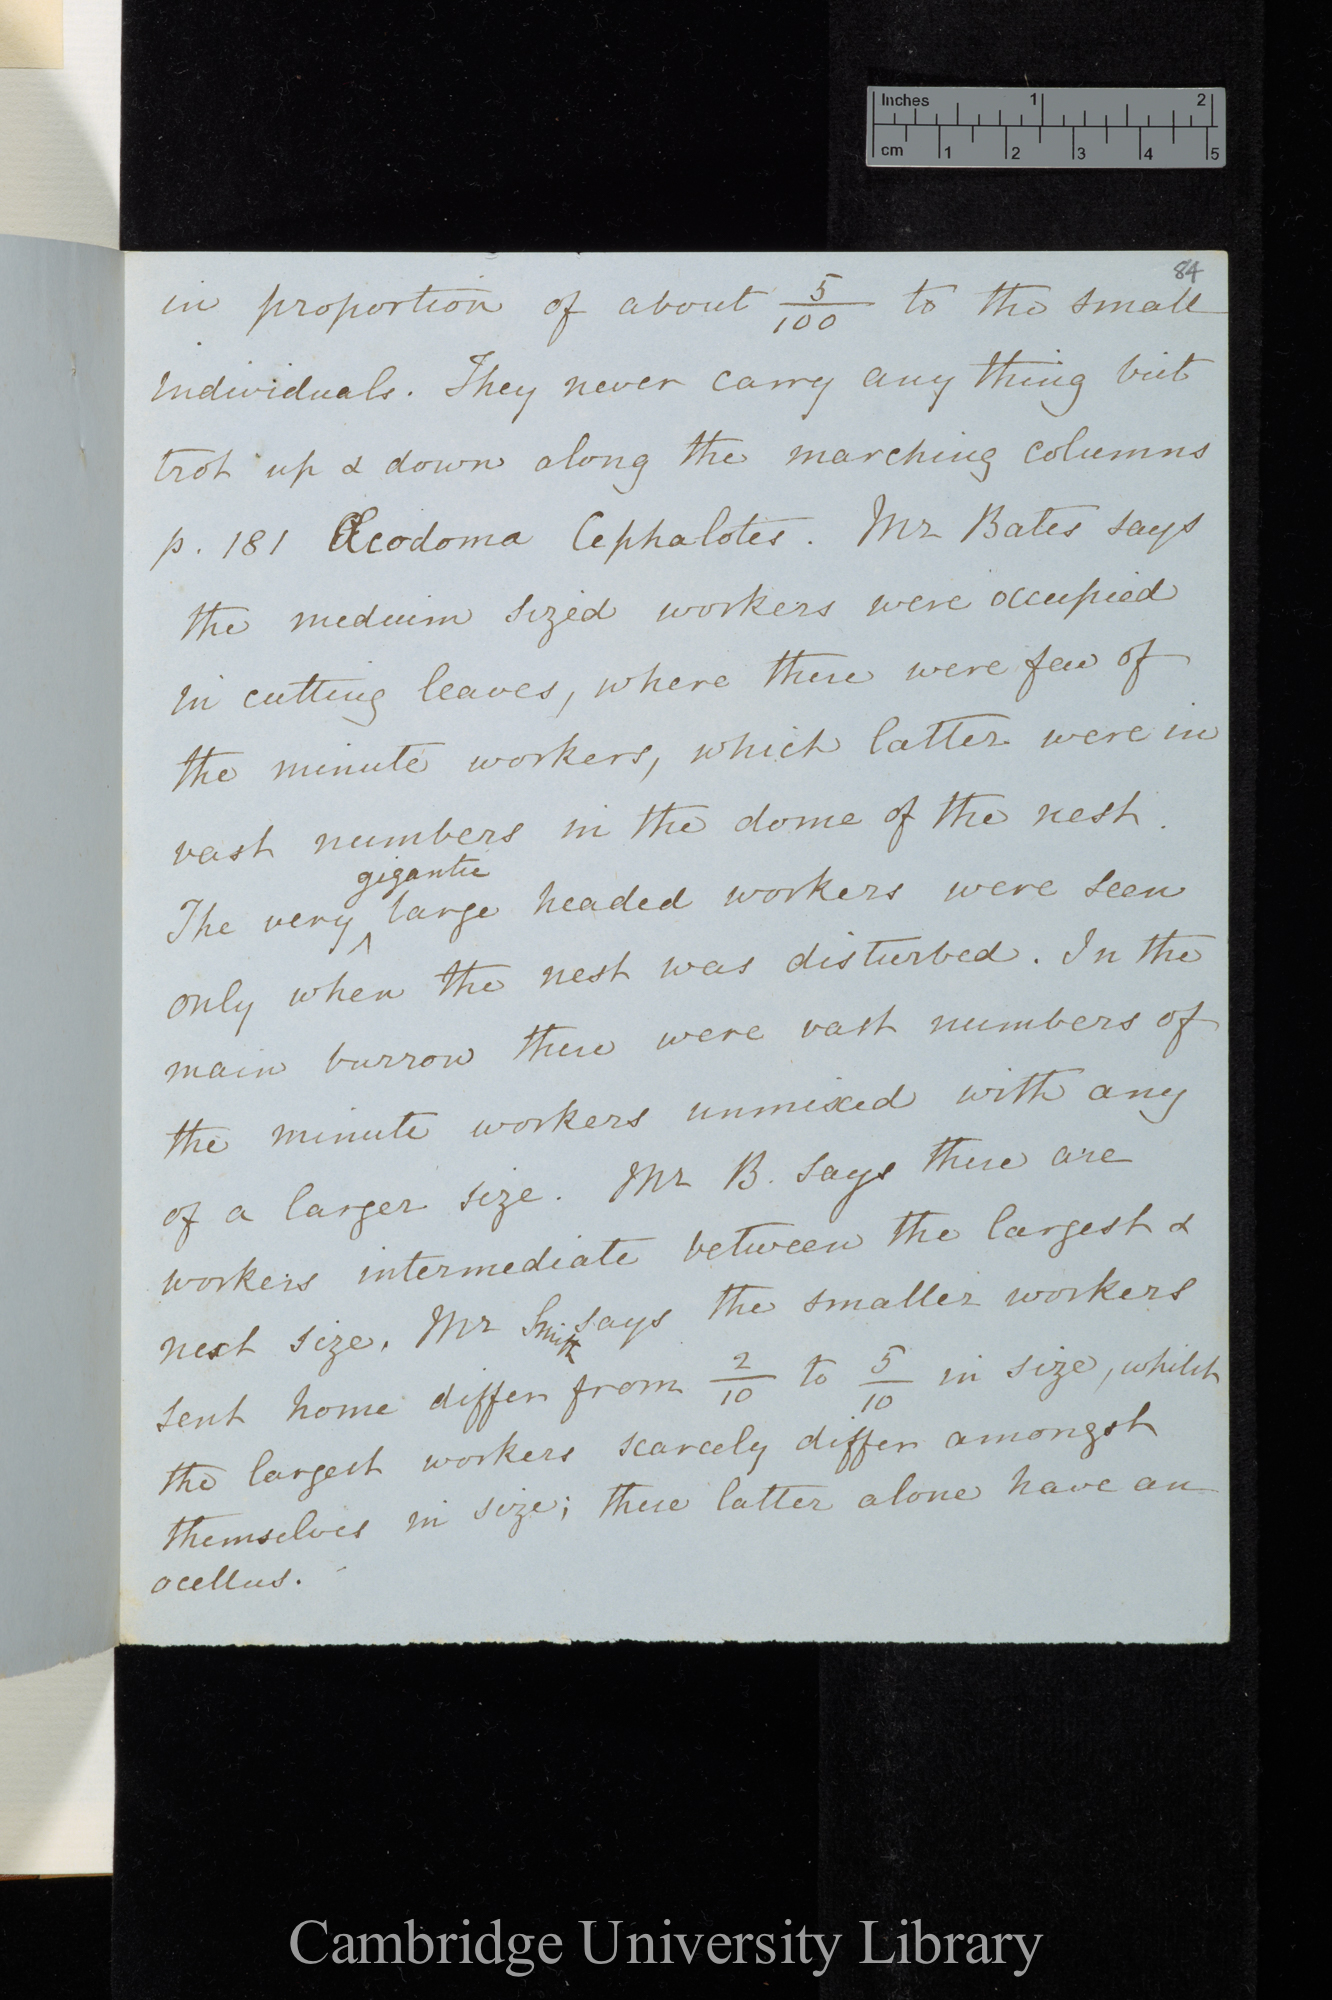 Inches 1 2
cm 1 2 3 4 5
84
in proportion of about 5/100 to the small
individuals. They never carry any thing but
trot up & down along the marching columns
p. 181 Œcodoma Cephalotes. Mr Bates says
the medium sized workers were occupied
in cutting leaves, where there were few of
the minute workers, which latter were in
vast numbers in the dome of the nest.
gigantic
The very ^ large headed workers were seen
only when the nest was disturbed. In the
main burrow there were vast numbers of
the minute workers unmixed with any
of a larger size. Mr B. says there are
workers intermediate between the largest &
next size. Mr Smith says the smaller workers
sent home differ from 2/10 to 5/10 in size, whilst
the largest workers scarcely differ amongst
themselves in size; these latter alone have an
ocellus.
Cambridge University Library